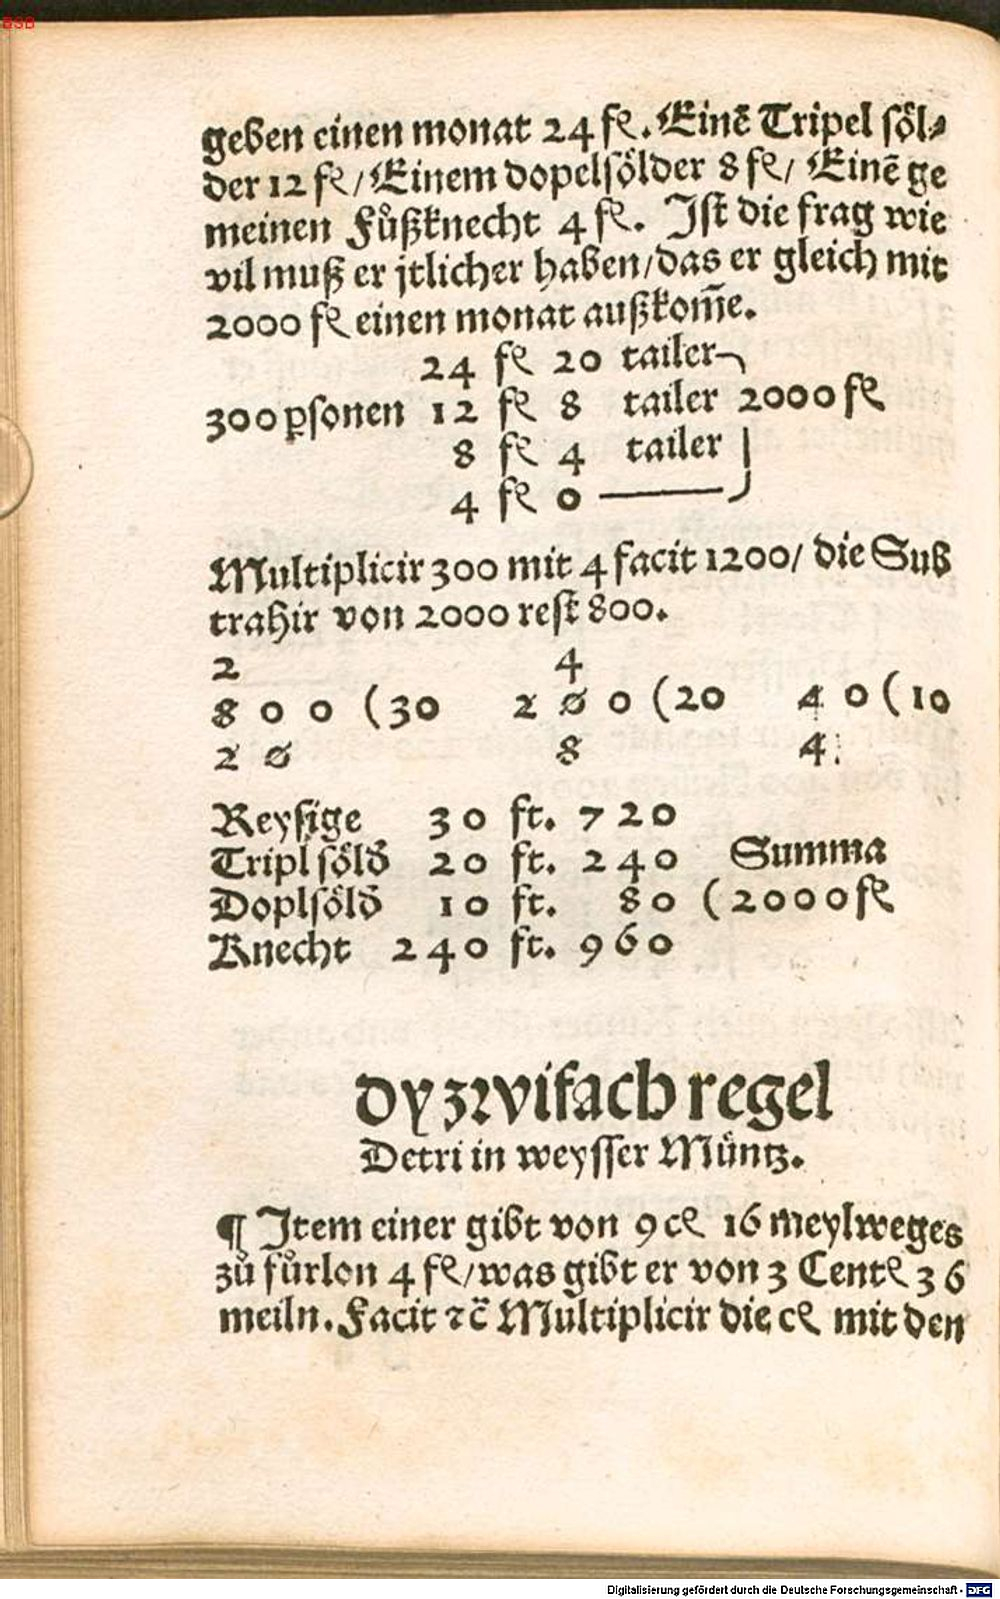 BSB
geben einen monat 24 fl. Einē Tripel söl⸗
der 12 fl / Einem dopelsölder 8 fl / Einē ge
meinen Fůßknecht 4 fl. Jst die frag wie
vil muß er jtlicher haben / das er gleich mit
2000 fl einen monat außkom̄e.
24 fl 20 tailer
300 ꝑsonen 12 fl 8 tailer 2000 fl
8 fl 4 tailer
4 fl 0
Multiplicir 300 mit 4 facit 1200 / die Sub
trahir von 2000 rest 800.
2 4
8 0 0 (30 2 0 0 (20 4 0 (10
2 0 8 4
Reysige 30 ft. 720
Tripl söld̕ 20 ft. 240 Summa
Doplsöld̕ 10 ft. 80 (2000 fl
Knecht 240 ft. 960
dy zwifach regel
Detri in weysser Müntz.
¶ Jtem einer gibt von 9 cl 16 meylweges
zů fůrlon 4 fl / was gibt er von 3 Centl 36
meiln. Facit ⁊c̄ Multiplicir die cl mit den
Digitalisierung gefördert durch die Deutsche Forschungsgemeinschaft - DFG